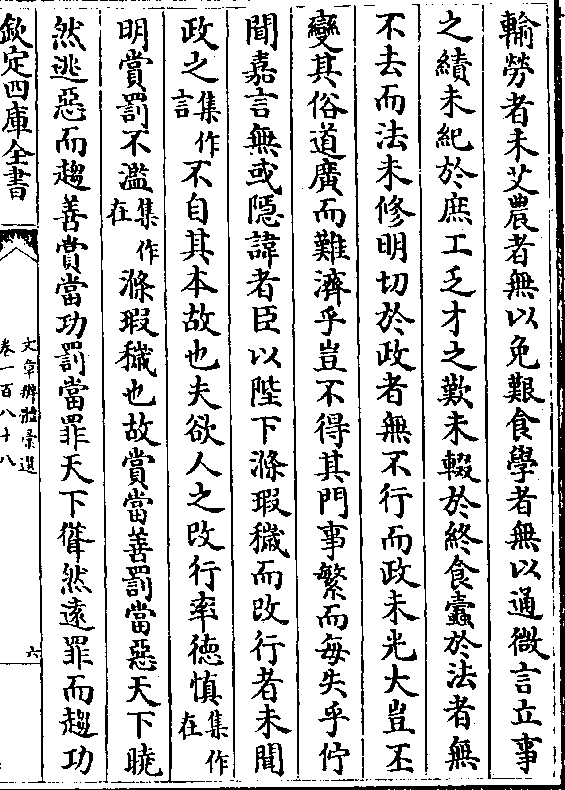 輸勞者未艾農者無以免艱食學者無以通微言立事
之績未紀於庶工乏才之歎未輟於終食蠧於法者無
不去而法未修明切於政者無不行而政未光大豈丕
變其俗道廣而難濟乎豈不得其門事繁而每失乎佇
聞嘉言無或隱諱者臣以陛下滌瑕穢而改行者未聞
政之集作言不自其本故也夫欲人之改行率徳慎集作在
明賞罰不濫集作在滌瑕穢也故賞當善罰當惡天下曉
然逃惡而趨善賞當功罰當罪天下聳然遠罪而趨功
欽定四庫全書
文章辨體彚選
卷一百八十八
六